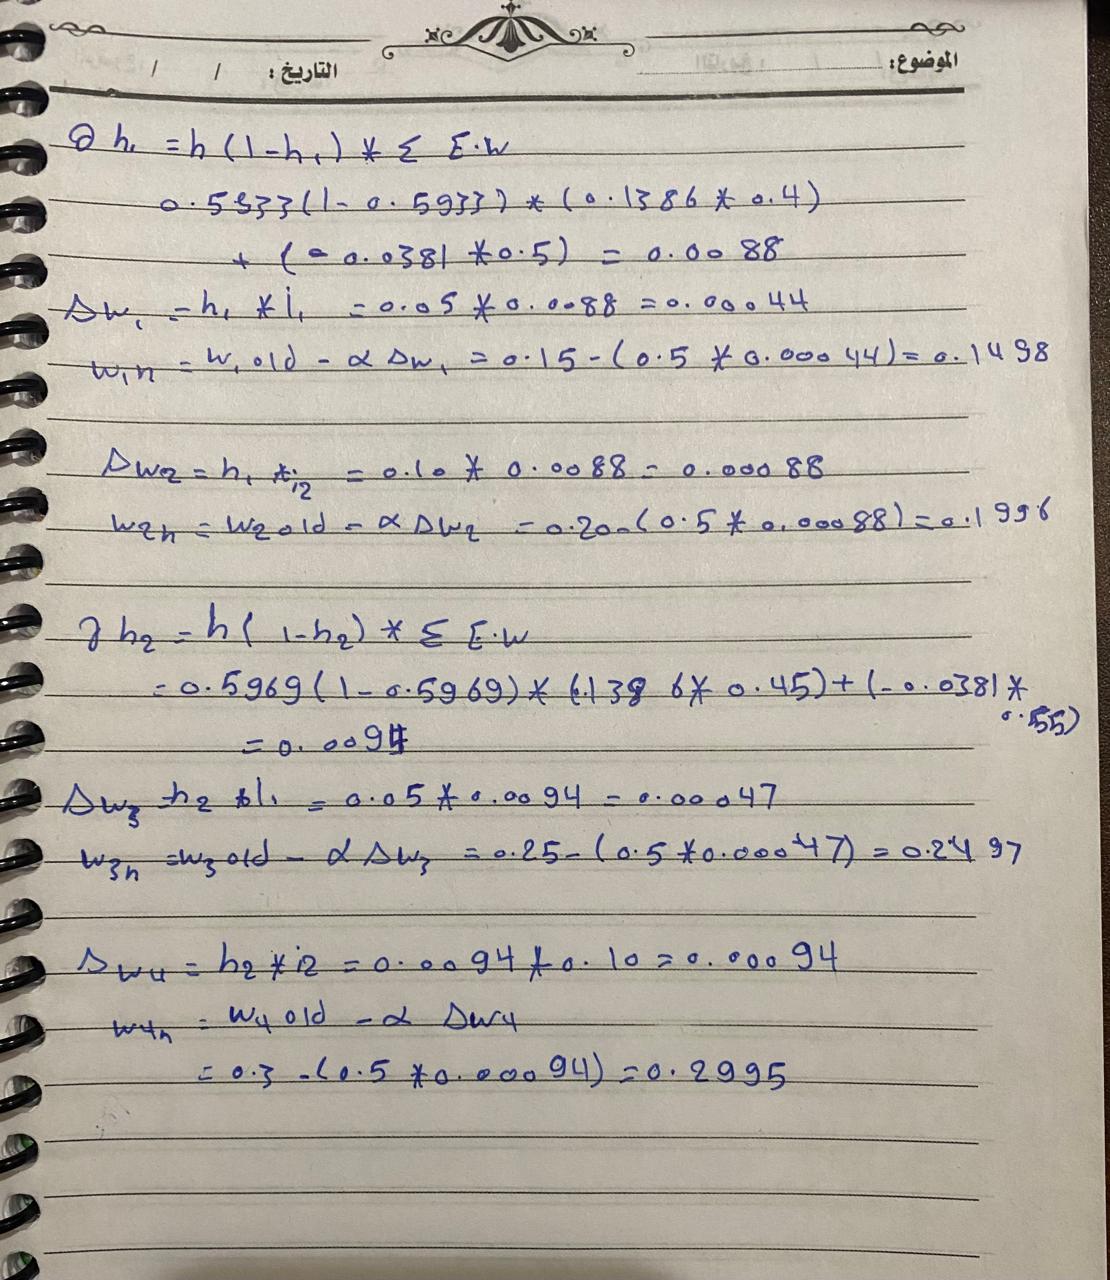 الموضوع:
التاريخ: / /
∂ h₁ = h (1-h₁) * Σ E.W
0.5933(1-0.5933) * (0.1386 * 0.4)
+ (-0.0381 * 0.5) = 0.0088
Δw₁ = h₁ * i₁ = 0.05 * 0.0088 = 0.00044
w₁n = w₁ old - α Δw₁ = 0.15-(0.5 * 0.00044) = 0.1498
Δw2 = h₁ * i2 = 0.10 * 0.0088 = 0.00088
w2n = w2 old - α Δw2 = 0.20-(0.5 * 0.00088) = 0.1996
∂ h2 = h( 1-h2) * Σ E.W
= 0.5969(1-0.5969) * (.1386 * 0.45) + (-0.0381 *
0.55)
= 0.0094
Δw3 = h2 * i₁ = 0.05 * 0.0094 = 0.00047
w3n = w3 old - α Δw3 = 0.25-(0.5 * 0.00047) = 0.2497
Δw4 = h2 * i2 = 0.0094 * 0.10 = 0.00094
w4n = w4 old - α Δw4
= 0.3 -(0.5 * 0.00094) = 0.2995